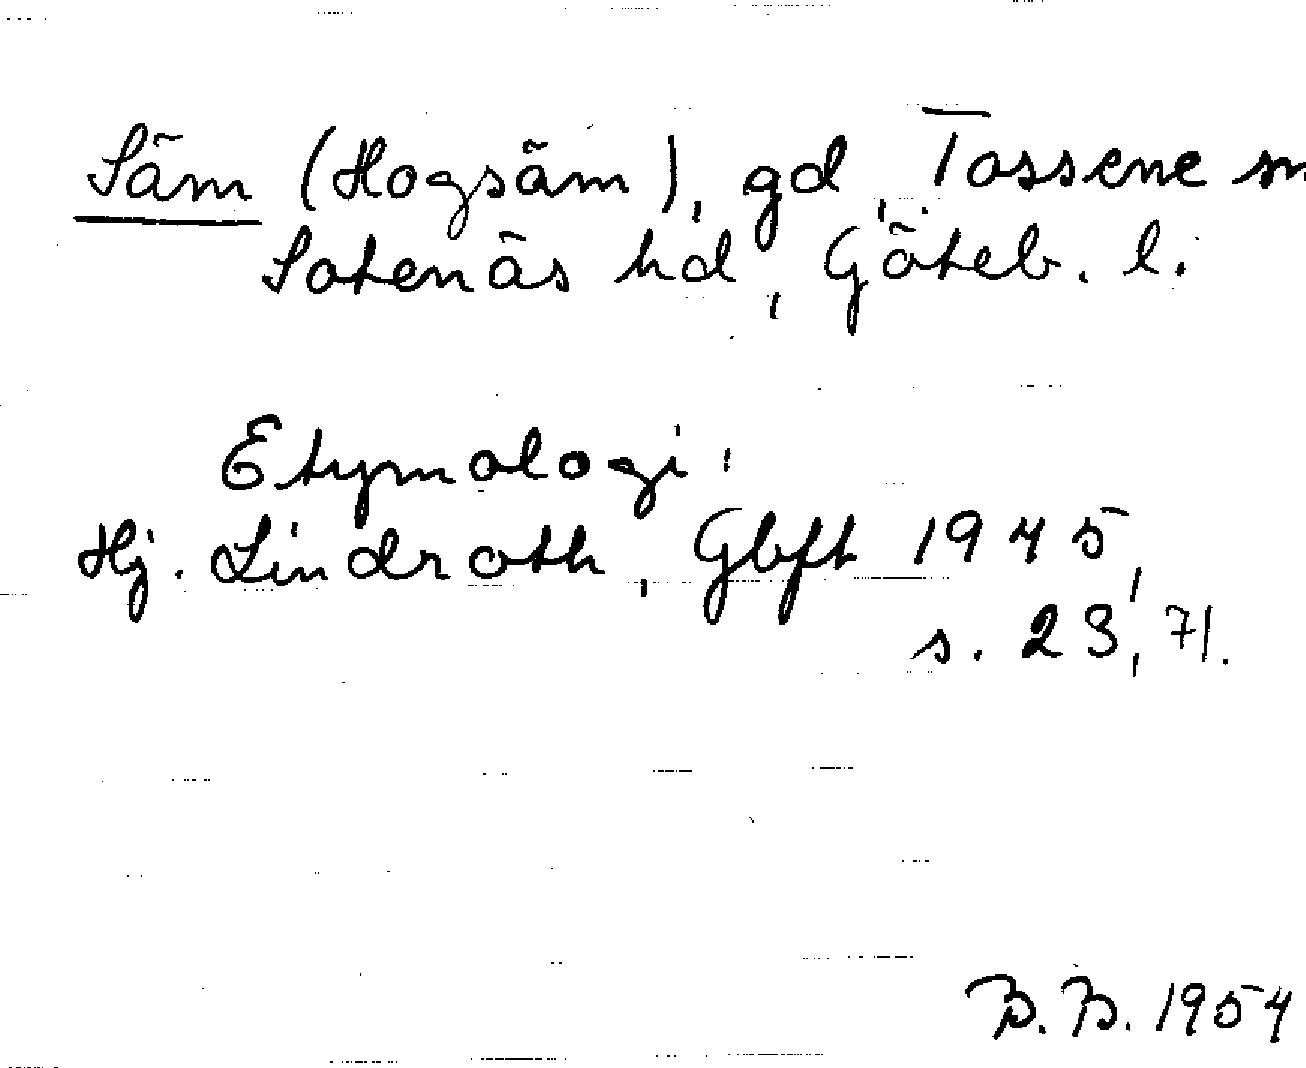 Säm (Hogsäm), gd, Tossene sn
Sotenäs hd, Göteb. l.
Etymologi:
Hj. Lindroth, Gbft 1945,
s. 23, 71.
B. B. 1954